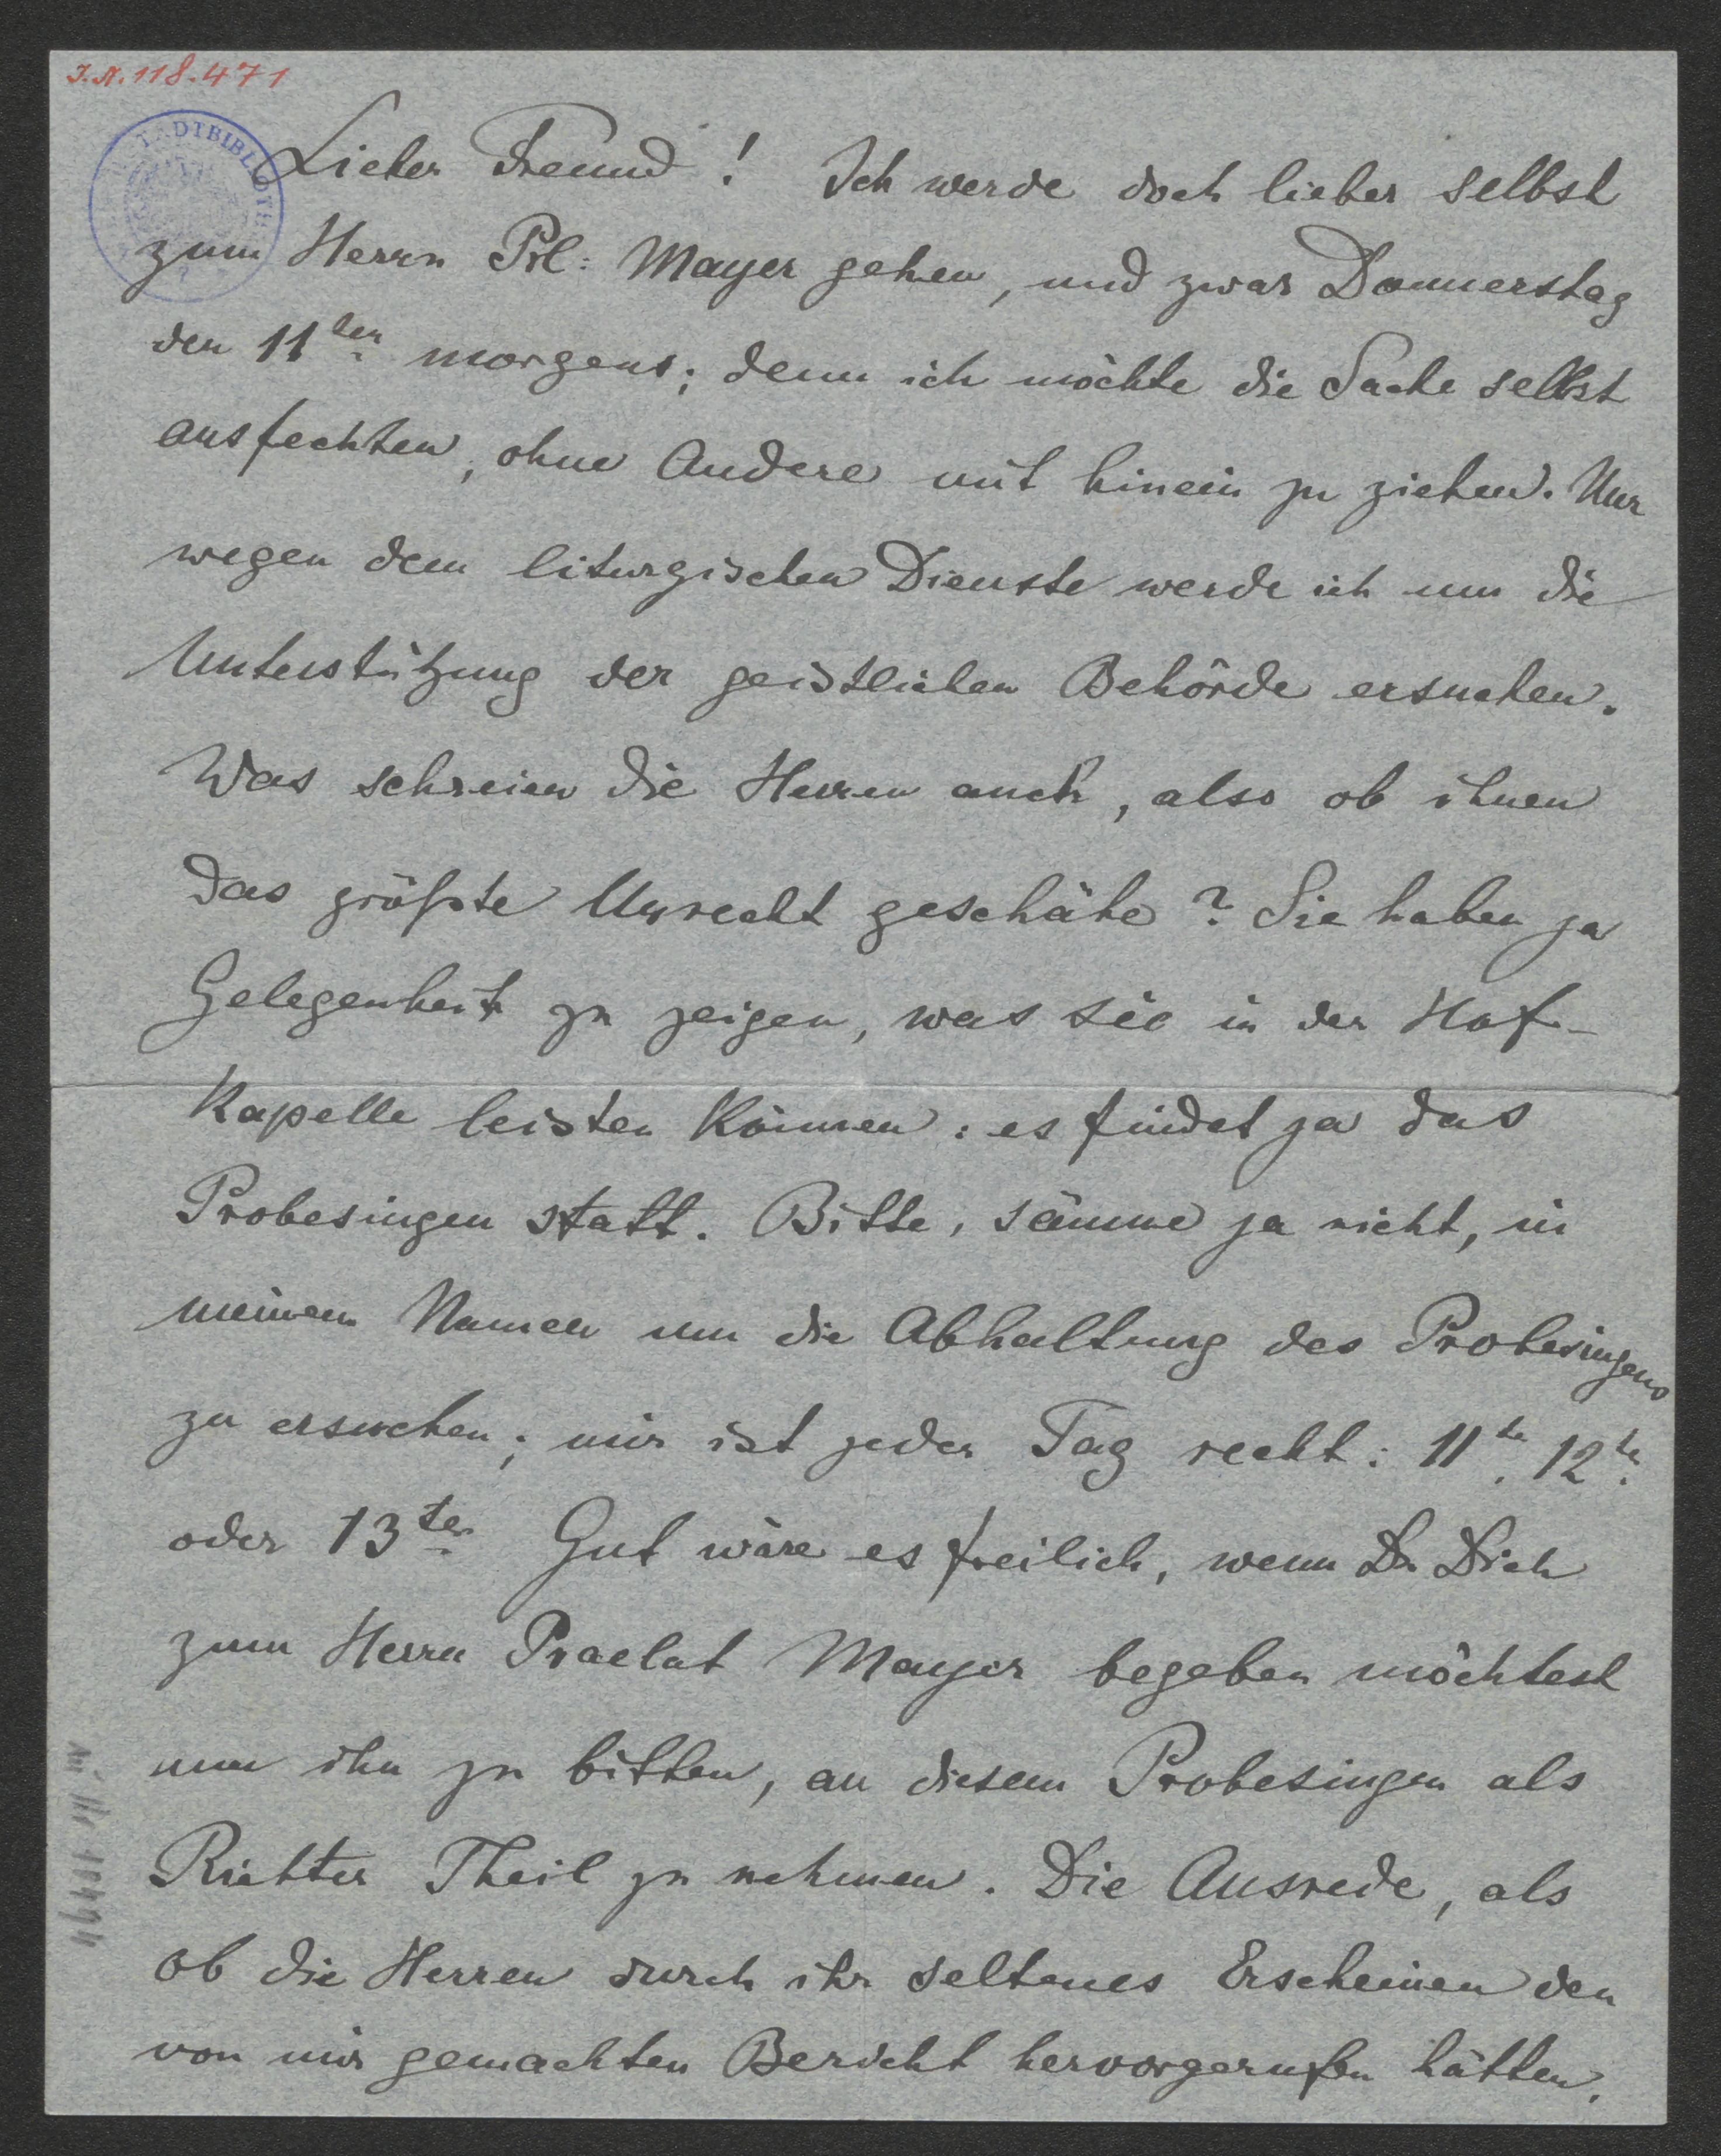 J.N. 118.471
STADTBIBLIOTH
Lieber Freund! Ich werde doch lieber selbst
zum Herrn Prl: Mayer gehen, und zwar Donnerstag
den 11ten morgens; denn ich möchte die Sache selbst
ausfechten, ohne Andere mit hinein zu ziehen. Nur
wegen dem liturgischen Dienste werde ich um die
Unterstützung der geistlichen Behörde ersuchen.
Was schreien die Herren auch, also ob ihnen
das größte Unrecht geschähe? Sie haben ja
Gelegenheit zu zeigen, was sie in der Hof-
kapelle leisten können: es findet ja das
Probesingen statt. Bitte, säume ja nicht, in
meinem Namen um die Abhaltung des Probesingens
zu ersuchen; mir ist jeder Tag recht: 11te. 12te.
oder 13ter Gut wäre es freilich, wenn Du Dich
zum Herrn Praelat Mayer begeben möchtest
um ihn zu bitten, an diesem Probesingen als
Richter Theil zu nehmen. Die Ausrede, als
ob die Herren durch ihr seltenes Erscheinen den
von mir gemachten Bericht hervorgerufen hätten,